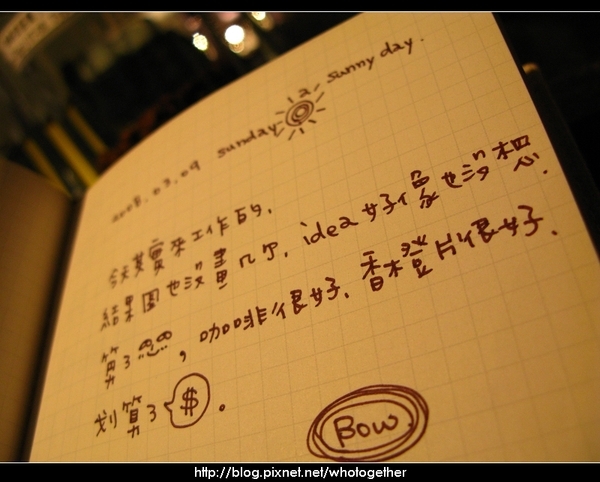 2008.03.09 sunday a sunny day.
今天其實來工作的,
結果圖也沒畫几个, idea 好像也沒想.
算了, 咖啡很好, 香橙片很好.
划算了 $ 。
Bow
http://blog.pixnet.net/whotogether